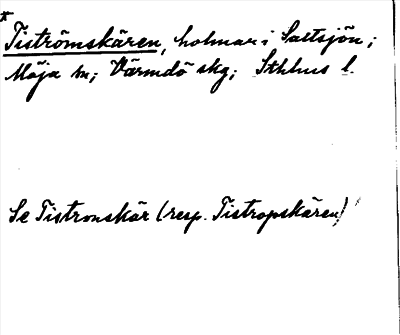 * Tiströmskären, holmar i Saltsjön;
Möja sn; Värmdö skg; Sthlms l.
Se Tistronskär (resp. Tistropskären)